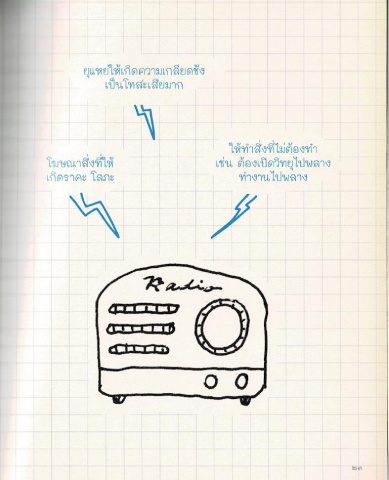 ยุแหย่ให้เกิดความเกลียดชัง
เป็นโทสะเสียมาก
โฆษณาสิ่งที่ให้
เกิดราคะ โลภะ
ให้ทำสิ่งที่ไม่ต้องทำ
เช่น ต้องเปิดวิทยุไปพลาง
ทำงานไปพลาง
Radio